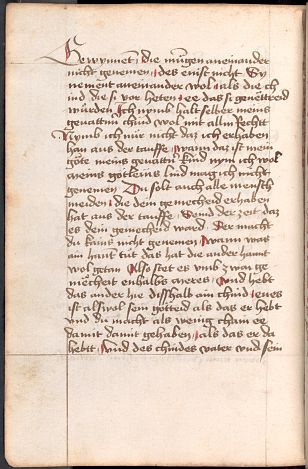 Sy
nement aneinander wol als die ch
ind die si vor heten ee das si geuettreid
wurden Ich nymb halt selber meins
geuattrin chind wol mit allm Recht
Nymb ich mir nicht daz ich erhaben
han aus der tauffe wann daz ist mein
göte meins geuattn kind nym ich wol
meins götleins lind mag ich nicht
genemen Du solt auch alle mensch
meiden die dem gemecheid erhaben
hat aus der tauffe Seind der zeit daz
es dein gemecheid ward Der macht
du kains nicht genemen wann was
ain hant tut das hat die ander hannt
wol getan Also stet es vmb zwai ge
mëcheit enhalbs meres Vnd hebt
das ander hie disshalb ain chind Jenes
ist alswol sein götteid als das er hebt
vnd du macht als wenig chain ee
damit damit gehaben als das er da
hebtt vnd des chindes vater vnd sein